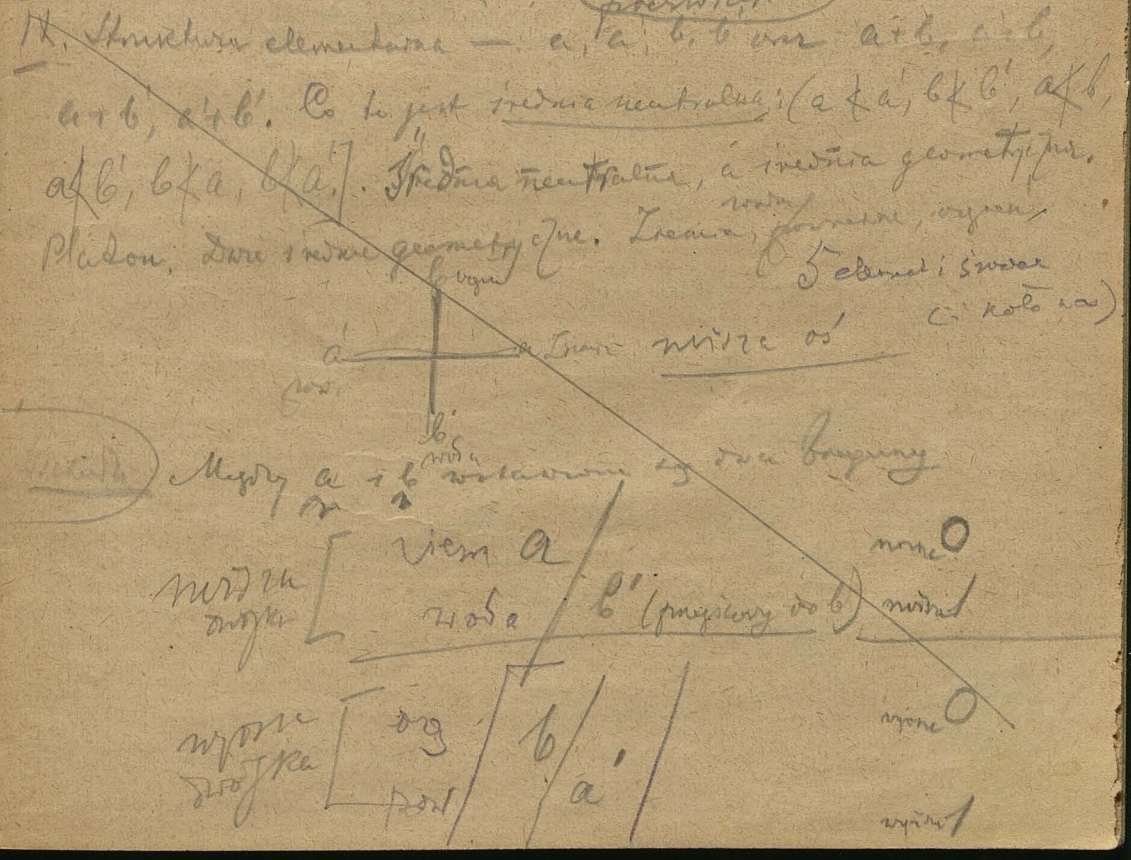 IV. Struktura elementarna — a, a', b, b' oraz a+b, a'+b,
a+b', a'+b'. Co to jest średnia neutralna; (a ≮ a', b ≮ b', a ≮ b,
a ≮ b', b ≮ a, b ≮ a'.]. Średnia neutralna, a średnia geometryczna.
woda
Platon. Dwie średnie geometryczne. Ziemia, powietrze, ogień
5 element i środek
b ogień
a' a Ziemia niższa oś
pow.
b'
woda
Między a i b wstawione są dwa
niższa dwójka
ziem a
woda b' (przejściowy do b)
niższe O
niższe 1
wyższa dwójka
og b
pow a'
wyższe O
wyższe 1